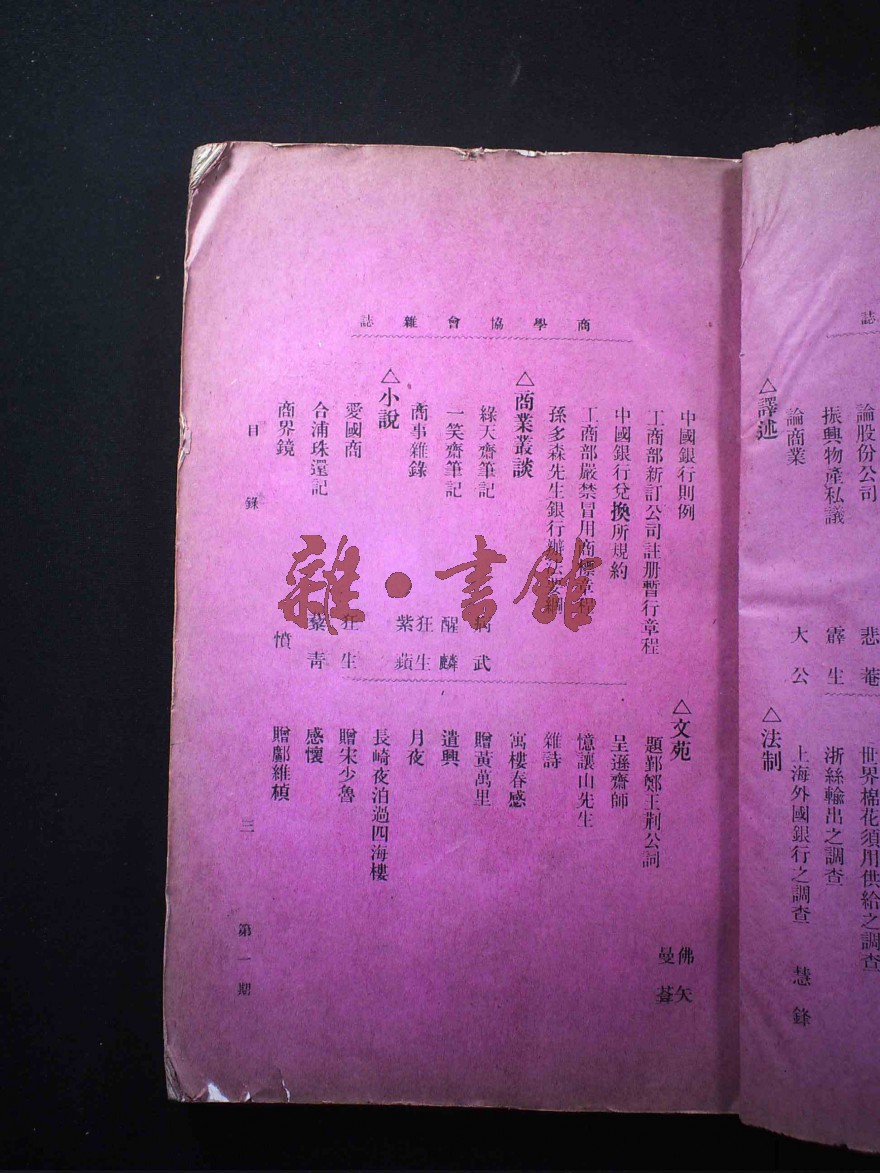 誌
論股份公司 悲菴
振興物產私議 霹生
論商業 大公
△譯述
世界棉花須用供給之調查
浙絲輸出之調查
上海外國銀行之調查 慧鋒
△法制
商學協會雜誌
中國銀行則例
工商部新訂公司註册暫行章程
中國銀行兌換所規約
工商部嚴禁冒用商標章程
孫多森先生銀行辦法要綱
△商業叢談
綠天齋筆記 病武
一笑齋筆記 醒麟
商事雜錄 狂生 紫蘋
△小說
愛國商 狂生
合浦珠還記 藜青
商界鏡 憤
△文苑
佛矢
曼葊
題鄞鄭王荆公詞
呈遜齋師
憶讓山先生
雜詩
寓樓春感
贈黃萬里
遣興
月夜
長崎夜泊過四海樓
贈宋少魯
感懷
贈鄺維楨
目錄 三 第一期
雜·書館